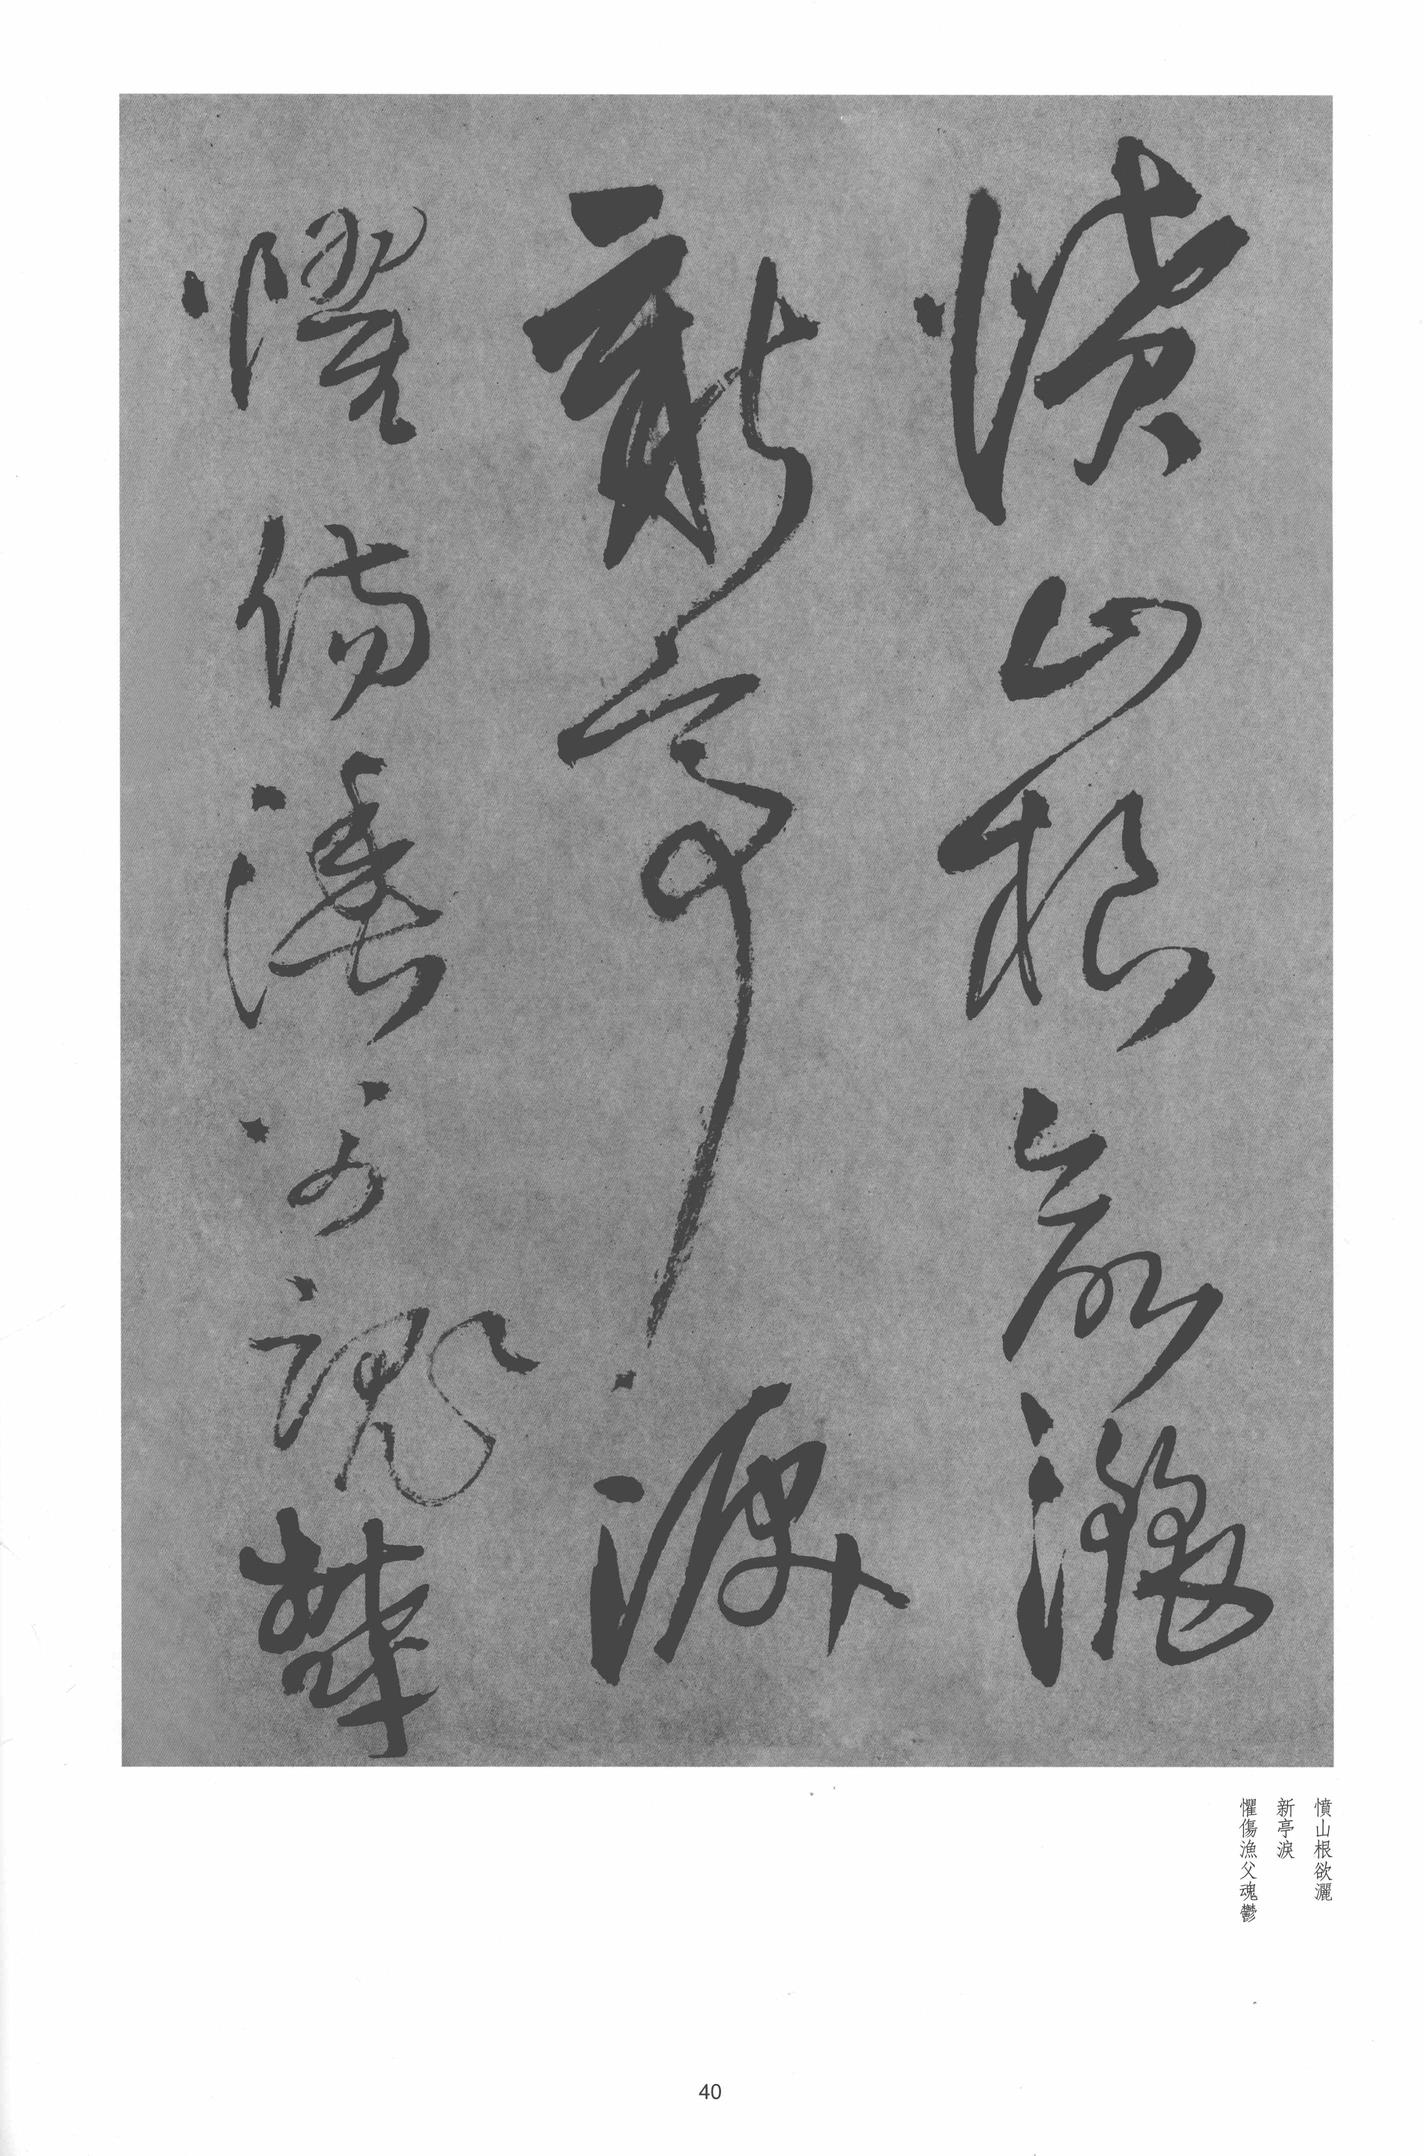 憤山根欲灑
新亭淚
懼傷漁父魂鬱
憤山根欲灑
新亭淚
懼傷漁父魂鬱
40